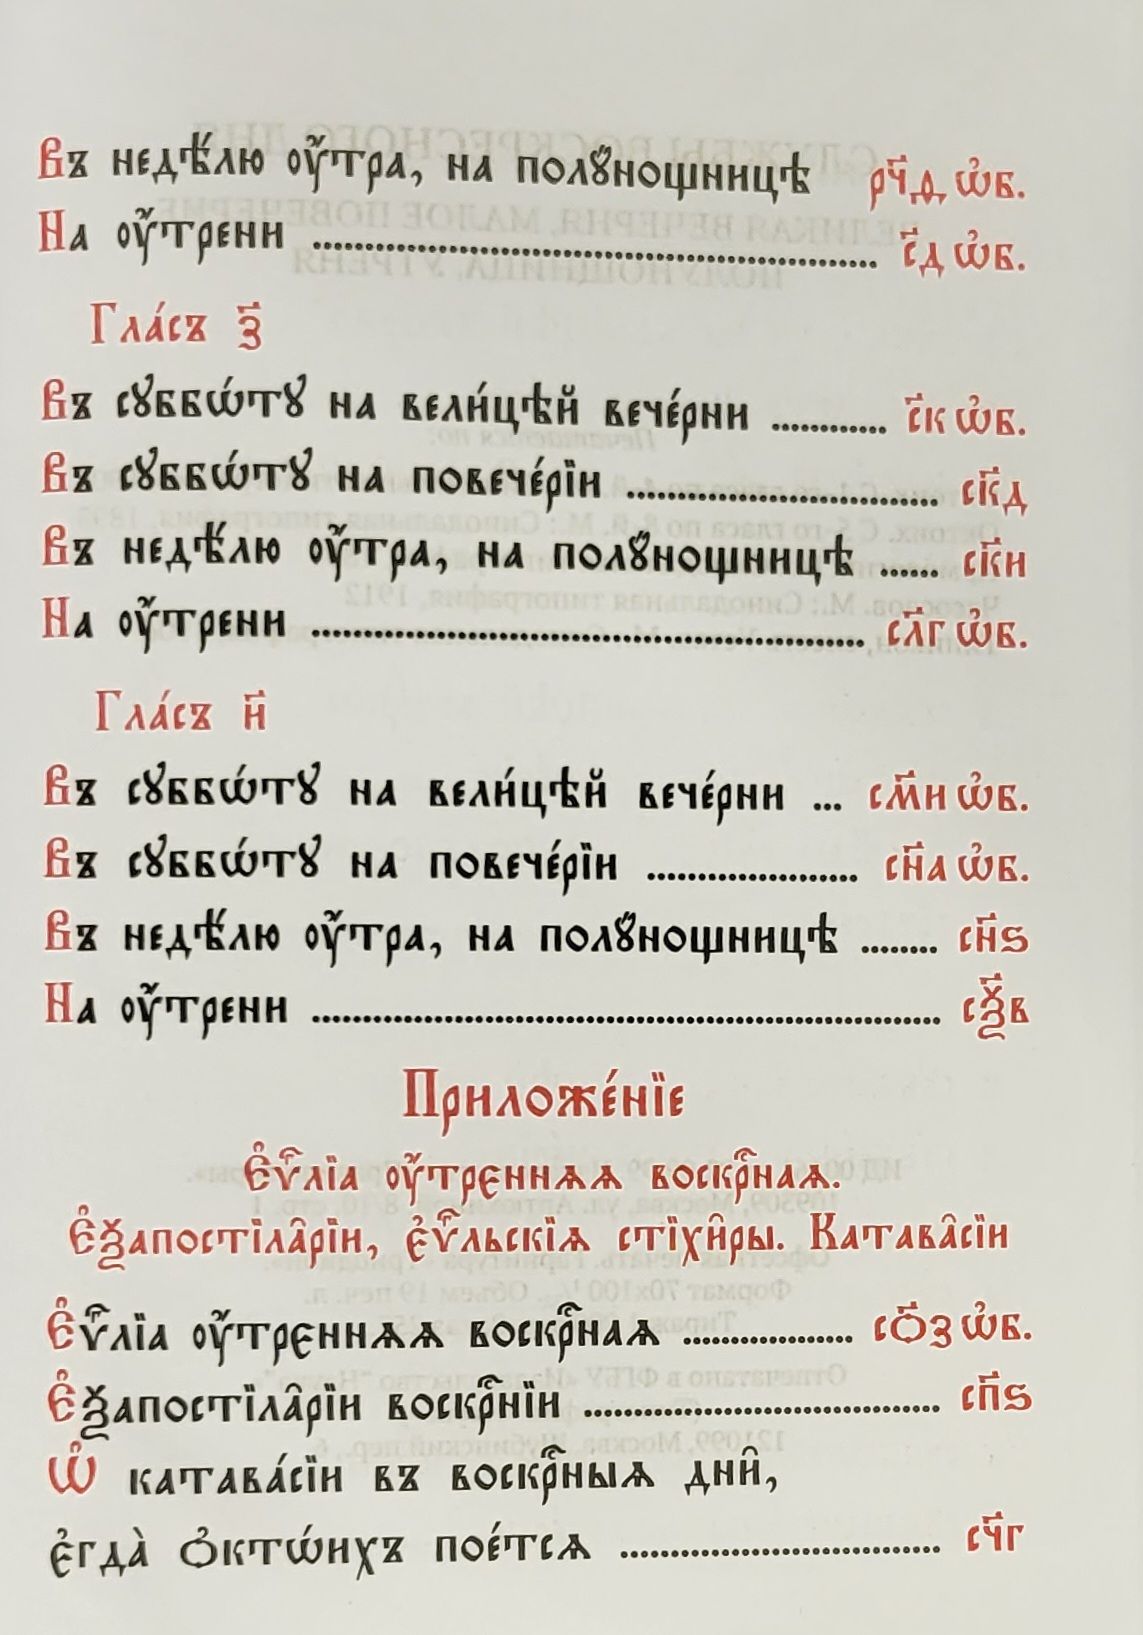 Въ недѣ́лю ᲂу҆́тра, на полꙋ́нощницѣ рч҃д ѡ҆б.
На ᲂу҆́трени ........ с҃д ѡ҆б.
Гла́съ з҃
Въ сꙋббѡ́тꙋ на вели́цѣй вече́рни ........ с҃к ѡ҆б.
Въ сꙋббѡ́тꙋ на повече́рїи ........ ск҃д
Въ недѣ́лю ᲂу҆́тра, на полꙋ́нощницѣ ...... ск҃и
На ᲂу҆́трени ........ сл҃г ѡ҆б.
Гла́съ и҃
Въ сꙋббѡ́тꙋ на вели́цѣй вече́рни ... см҃и ѡ҆б.
Въ сꙋббѡ́тꙋ на повече́рїи ........ сн҃а ѡ҆б.
Въ недѣ́лю ᲂу҆́тра, на полꙋ́нощницѣ ........ сн҃ѕ
На ᲂу҆́трени ........ сѯ҃в
Приложе́нїе
Є҆ѵⷢ҇лїа ᲂу҆́трєннѧѧ воскрⷭ҇наѧ.
Є҆ѯапостїла̑рїи, є҆ѵⷢ҇льскїѧ стїхи̑ры. Катава̑сїи
Є҆ѵⷢ҇лїа ᲂу҆́трєннѧѧ воскрⷭ҇наѧ ........ со҃з ѡ҆б.
Є҆ѯапостїла̑рїи воскрⷭ҇нїи ........ сп҃ѕ
Ѡ҆ катава́сїи въ воскрⷭ҇ныѧ дни̑,
є҆гда̀ ѻ҆ктѡ́ихъ пое́тсѧ ........ сч҃г